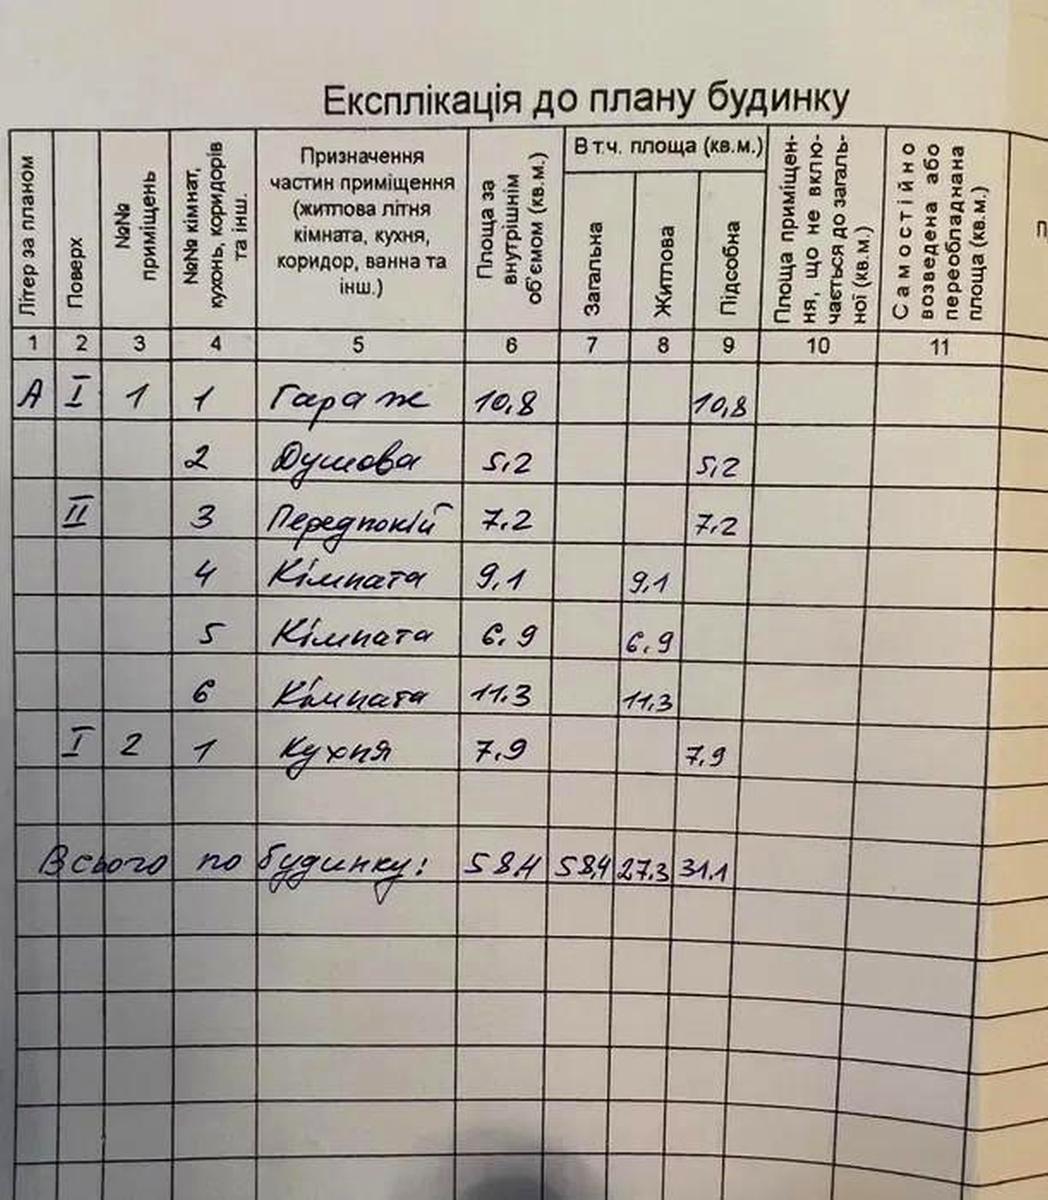 Експлікація до плану будинку
Літер за планом
Поверх
№№ приміщень
№№ кімнат, кухонь, коридорів та інш.
Призначення частин приміщення (житлова літня кімната, кухня, коридор, ванна та інш.)
Площа за внутрішнім об'ємом (кв.м.)
В т.ч. площа (кв.м.)
Загальна
Житлова
Підсобна
Площа приміщен-ня, що не вклю-чається до загаль-ної (кв.м.)
Самостійно возведена або переобладнана площа (кв.м.)
1 2 3 4 5 6 7 8 9 10 11
А І 1 1 Гараж 10,8 10,8
2 Душова 5,2 5,2
ІІ 3 Передпокій 7.2 7.2
4 Кімната 9,1 9,1
5 Кімната 6.9 6.9
6 Кімната 11.3 11,3
І 2 1 Кухня 7.9 7.9
Всього по будинку: 58,4 58,4 27.3 31.1